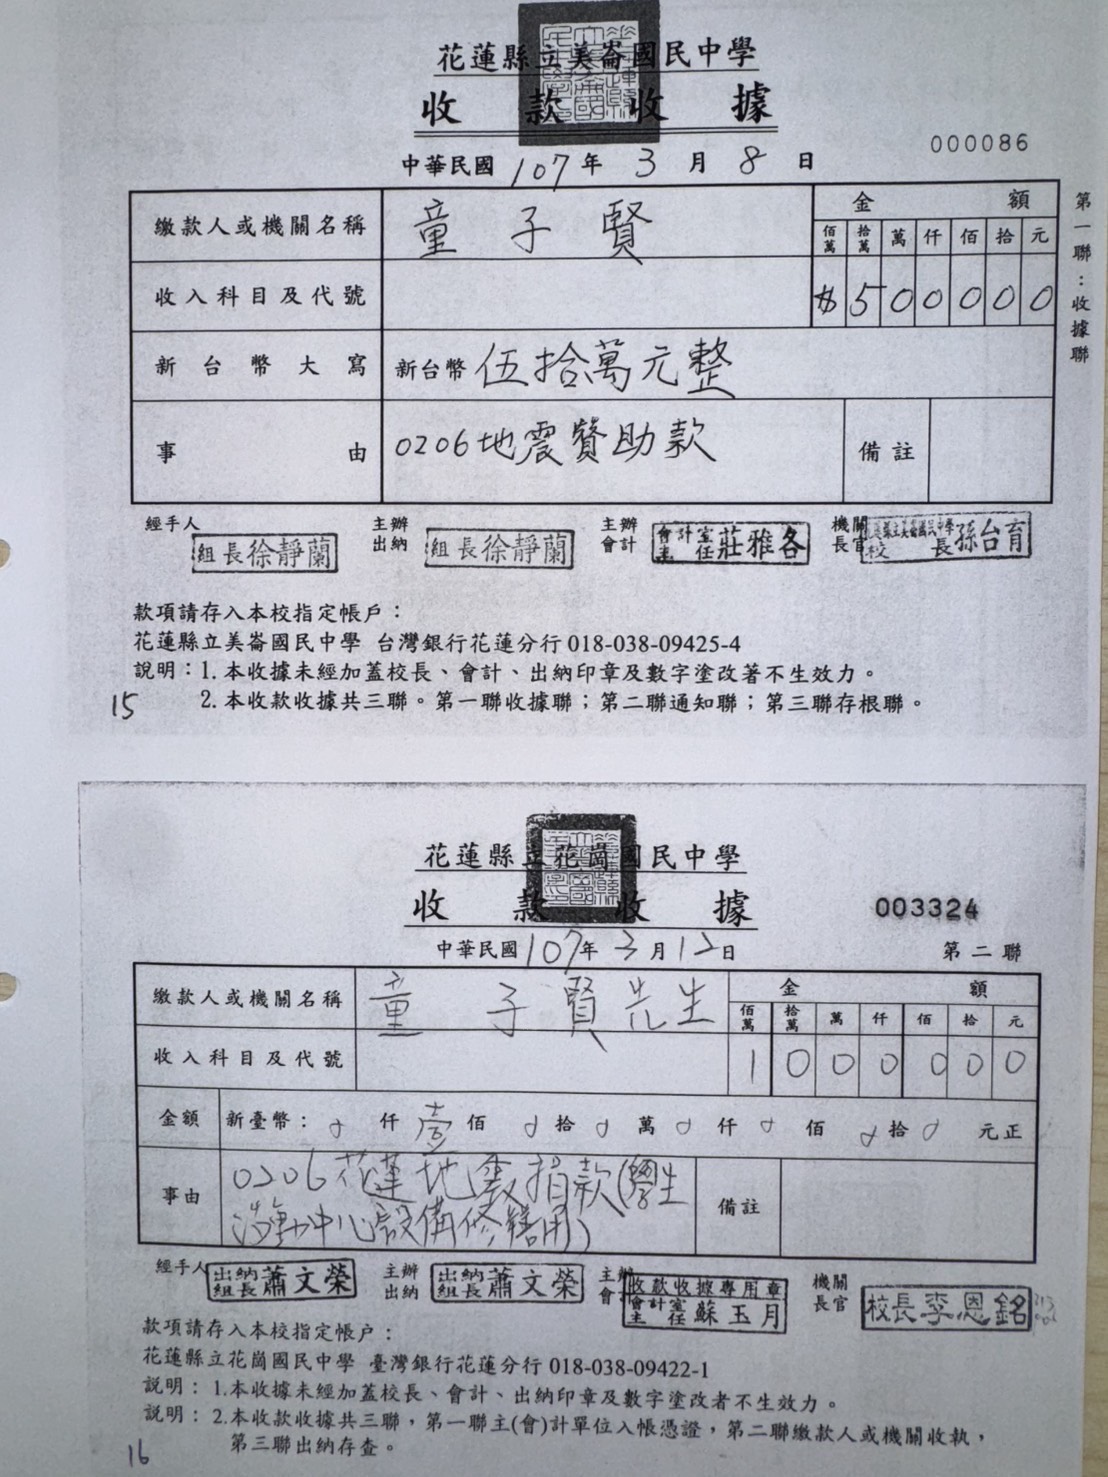 花蓮縣立美崙國民中學
收款收據
000086
中華民國 107 年 3 月 8 日
第一聯：收據聯
繳款人或機關名稱 童子賢
金額
佰萬 拾萬 萬 仟 佰 拾 元
收入科目及代號 $ 5 0 0 0 0 0
新台幣大寫 新台幣 伍拾萬元整
事由 0206地震贊助款 備註
經手人 組長徐靜蘭 主辦出納 組長徐靜蘭 主辦會計 會計室主任莊雅各 機關長官 校長孫台育
款項請存入本校指定帳戶：
花蓮縣立美崙國民中學 台灣銀行花蓮分行 018-038-09425-4
說明：1.本收據未經加蓋校長、會計、出納印章及數字塗改著不生效力。
2.本收款收據共三聯。第一聯收據聯；第二聯通知聯；第三聯存根聯。
15
花蓮縣立花崗國民中學
收款收據
003324
中華民國 107 年 3 月 12 日
第二聯
繳款人或機關名稱 童子賢先生
金額
佰萬 拾萬 萬 仟 佰 拾 元
收入科目及代號 1 0 0 0 0 0 0
金額 新臺幣： 仟 壹 佰 拾 萬 仟 佰 拾 元正
事由 0206花蓮地震捐款(學生
活動中心設備修繕用) 備註
經手人 出納組長蕭文榮 主辦出納 出納組長蕭文榮 主辦會計 收款收據專用章 會計室主任蘇玉月 機關長官 校長李恩銘
款項請存入本校指定帳戶：
花蓮縣立花崗國民中學 臺灣銀行花蓮分行 018-038-09422-1
說明：1.本收據未經加蓋校長、會計、出納印章及數字塗改者不生效力。
說明：2.本收款收據共三聯，第一聯主(會)計單位入帳憑證，第二聯繳款人或機關收執，
第三聯出納存查。
16